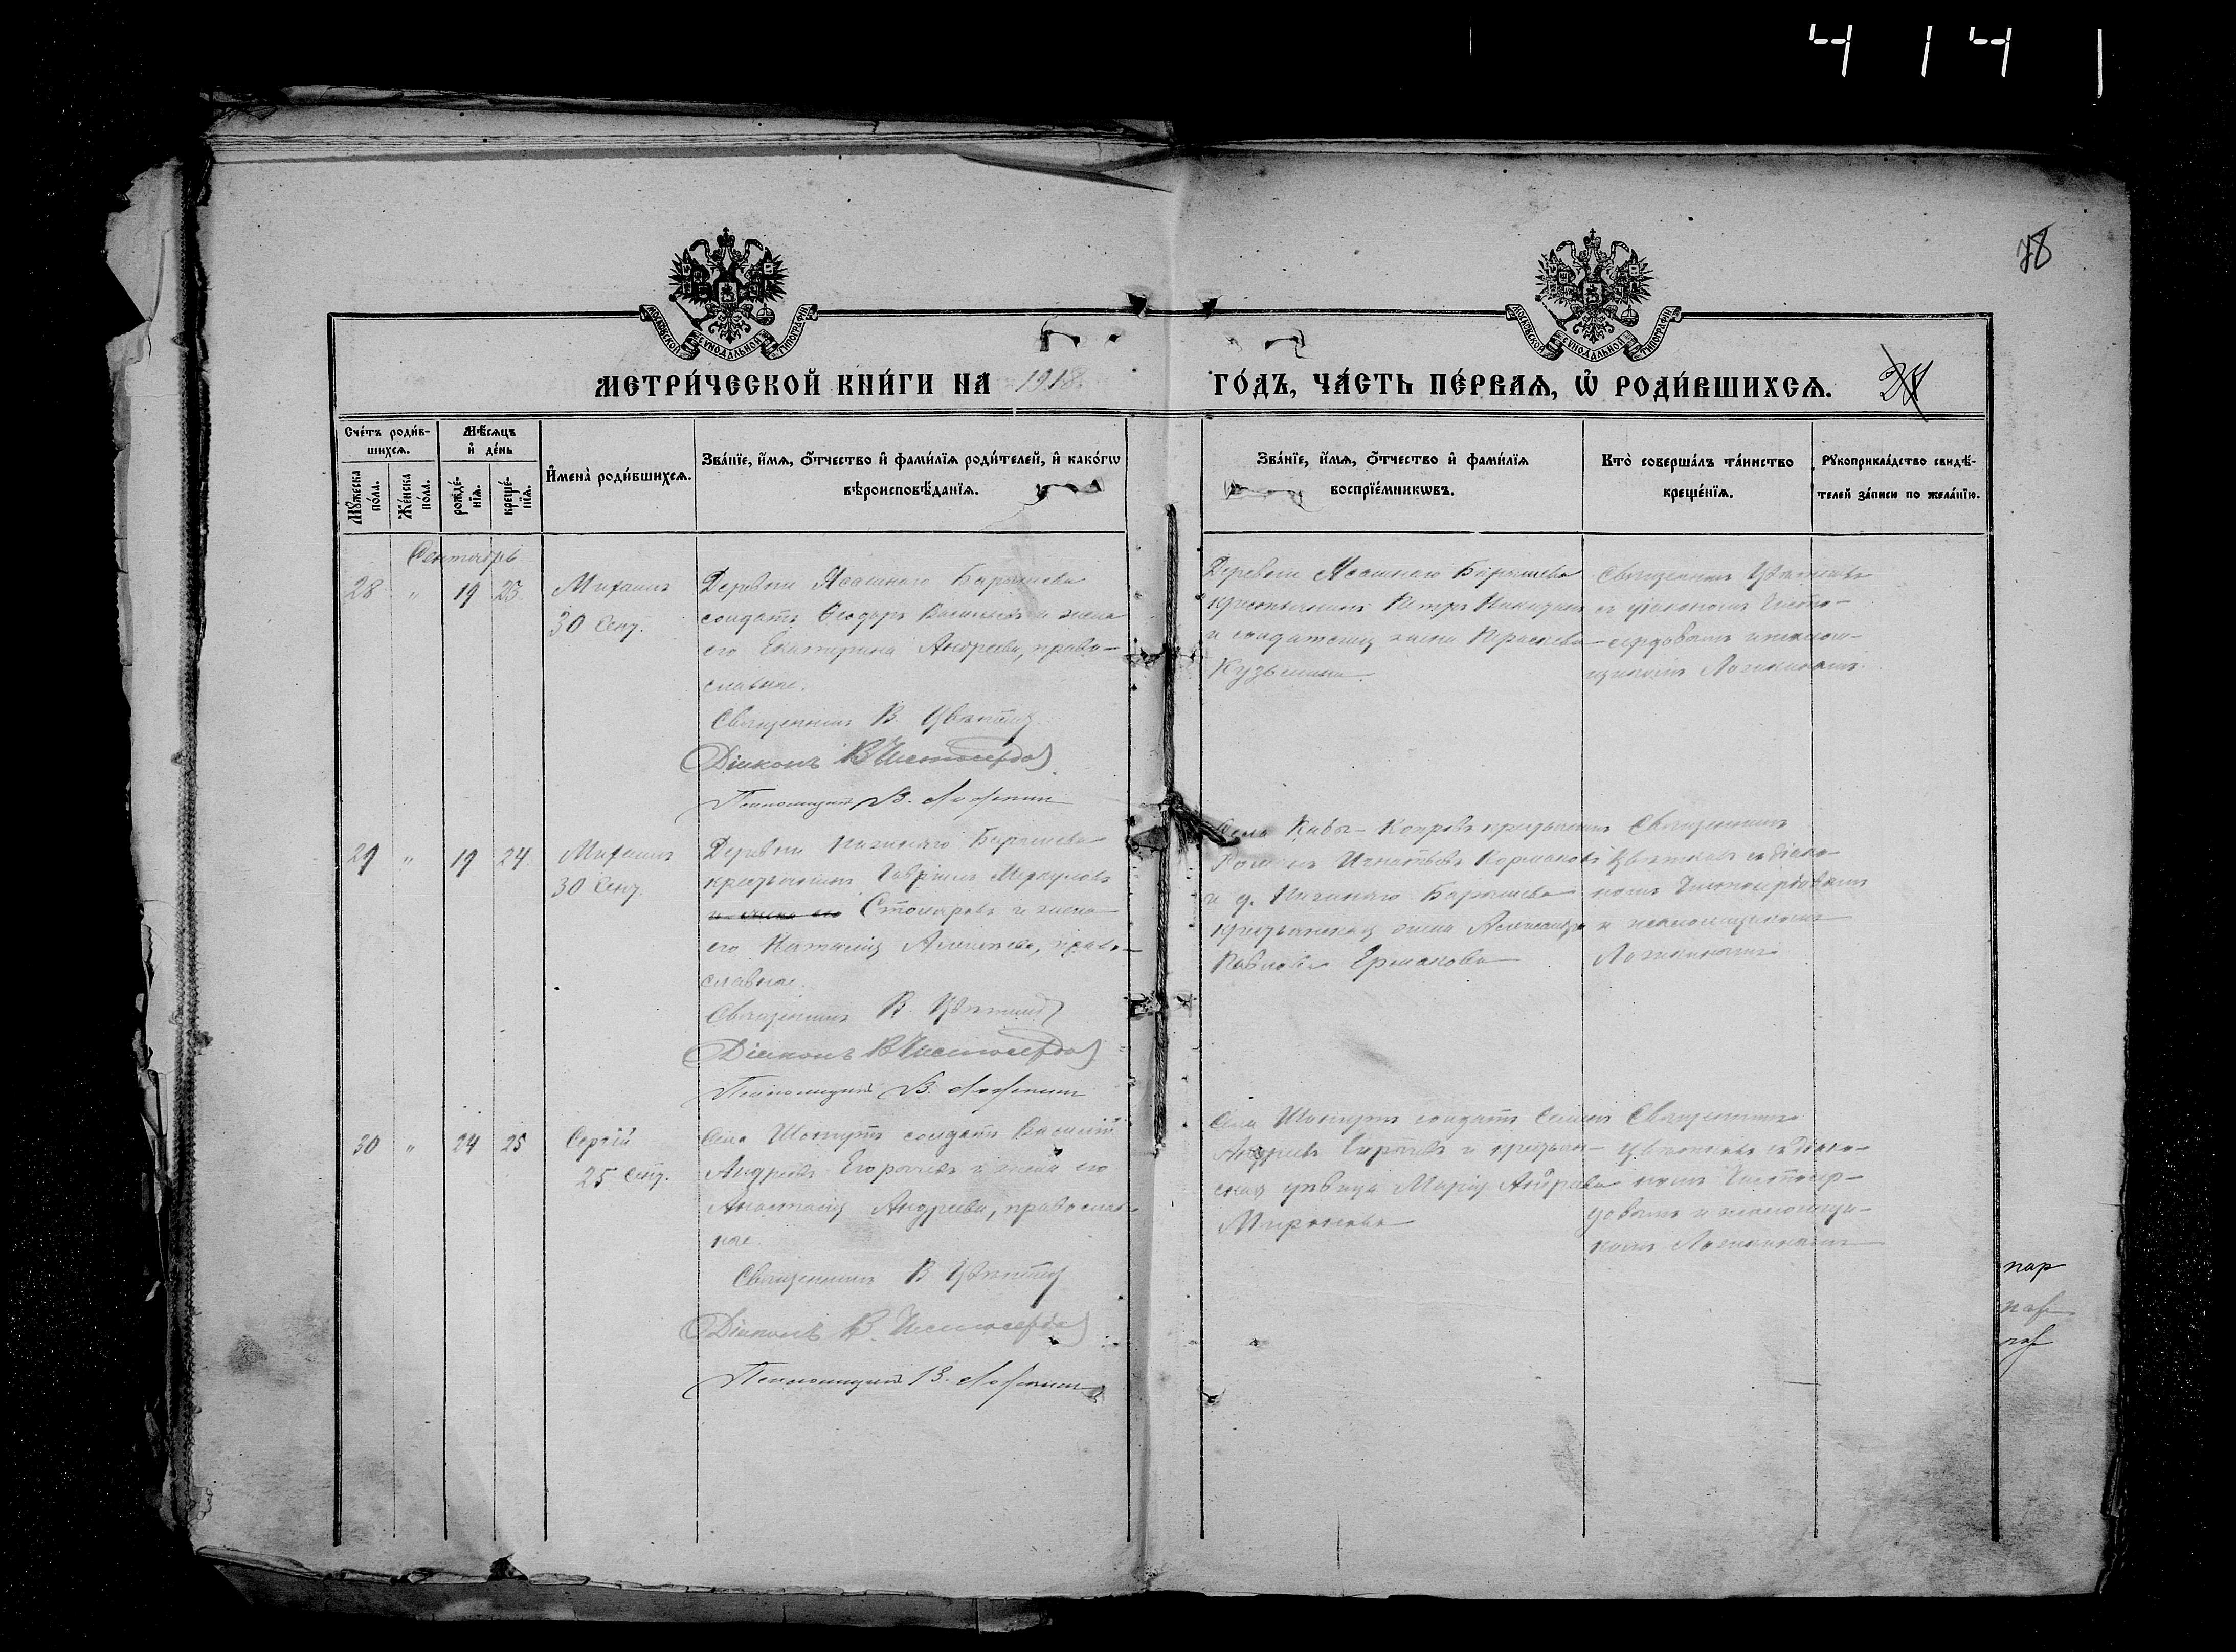 4 1 4 1
78
МОСКОВСКОЙ СѴНОДАЛЬНОЙ ТИПОГРАФІИ
МОСКОВСКОЙ СѴНОДАЛЬНОЙ ТИПОГРАФІИ
МЕТРИ́ЧЕСКОЙ КНИ́ГИ НА 1918
ГО́ДЪ, ЧА́СТЬ ПЕ́РВАѦ, Ѡ҆ РОДИ́ВШИХСѦ.
Сче́тъ роди́в-
шихсѧ.
Мꙋ́жеска по́ла.
Же́нска по́ла.
Мѣ́сѧцъ
и҆ де́нь
рожде́-
нїѧ.
креще́-
нїѧ.
И҆мена̀ роди́вшихсѧ.
Зва́нїе, и҆́мѧ, ѻ҆́тчество и҆ фами́лїѧ роди́телей, и҆ како́гѡ
вѣроисповѣ́данїѧ.
Зва́нїе, и҆́мѧ, ѻ҆́тчество и҆ фами́лїѧ
воспрїе́мникѡвъ.
Кто̀ соверша́лъ та́инство
креще́нїѧ.
Рꙋкоприкла́дство свидѣ́-
телей за́писи по жела́нїю.
Сентябрь
28 " 19 23
Михаилъ
30 Сент.
Деревни Ясашнаго Барышева
солдатъ Ѳеодоръ Васильевъ и жена
его Екатерина Андреева, право-
славные.
Священникъ В. Цвѣтковъ
Діаконъ В Чистосердов
Псаломщикъ В. Ложкин
Деревни Ясашнаго Барышева
крестьянинъ Петръ
и солдатская жена Параскева
Кузьмина
Священникъ Цвѣтковъ
съ діакономъ Чисто-
сердовымъ и псалом-
щикомъ Ложкинымъ.
29 " 19 24
Михаилъ
30 Сент.
Деревни Барышева
крестьянинъ Гавріилъ Меркуловъ
и жена его Столяровъ и жена
его Наталія Алексѣева, право-
славные.
Священникъ В. Цвѣтковъ
Діаконъ В Чистосердов
Псаломщикъ В. Ложкин
Села Кабы-Копровъ крестьянинъ
Романъ Игнатьевъ
и д. Барышева
крестьянская жена Александра
Павлова Ермакова
Священникъ
Цвѣтковъ съ діако-
номъ Чистосердовымъ
и псаломщикомъ
Ложкинымъ
30 " 24 25
Сергій
25 Сент.
Села Шонгутъ солдатъ Василій
Андреевъ Егорычевъ и жена его
Анастасія Андреева, православ-
ные.
Священникъ В Цвѣтковъ
Діаконъ В. Чистосердов
Псаломщикъ В. Ложкин
Села Шонгутъ солдатъ
Андреевъ и крестьян-
ская дѣвица Марія Андреева
Миронова
Священникъ
Цвѣтковъ съ діако-
номъ Чистосер-
довымъ и псаломщи-
комъ Ложкинымъ